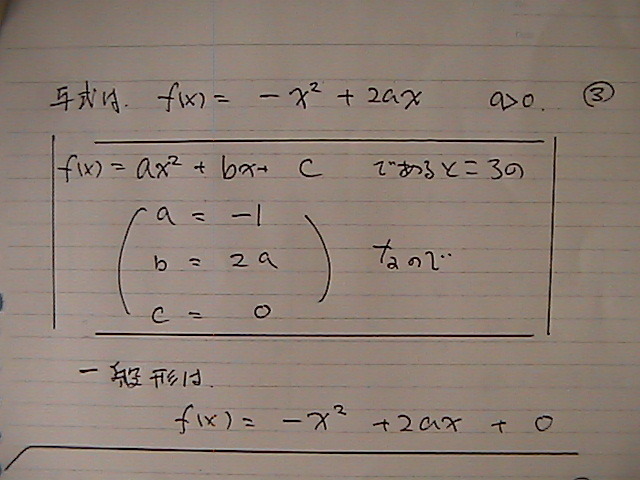 与式は. f(x) = -x² + 2ax a>0. ③
f(x) = ax² + bx + c であるところの
a = -1
b = 2a なので
c = 0
一般形は.
f(x) = -x² + 2ax + 0